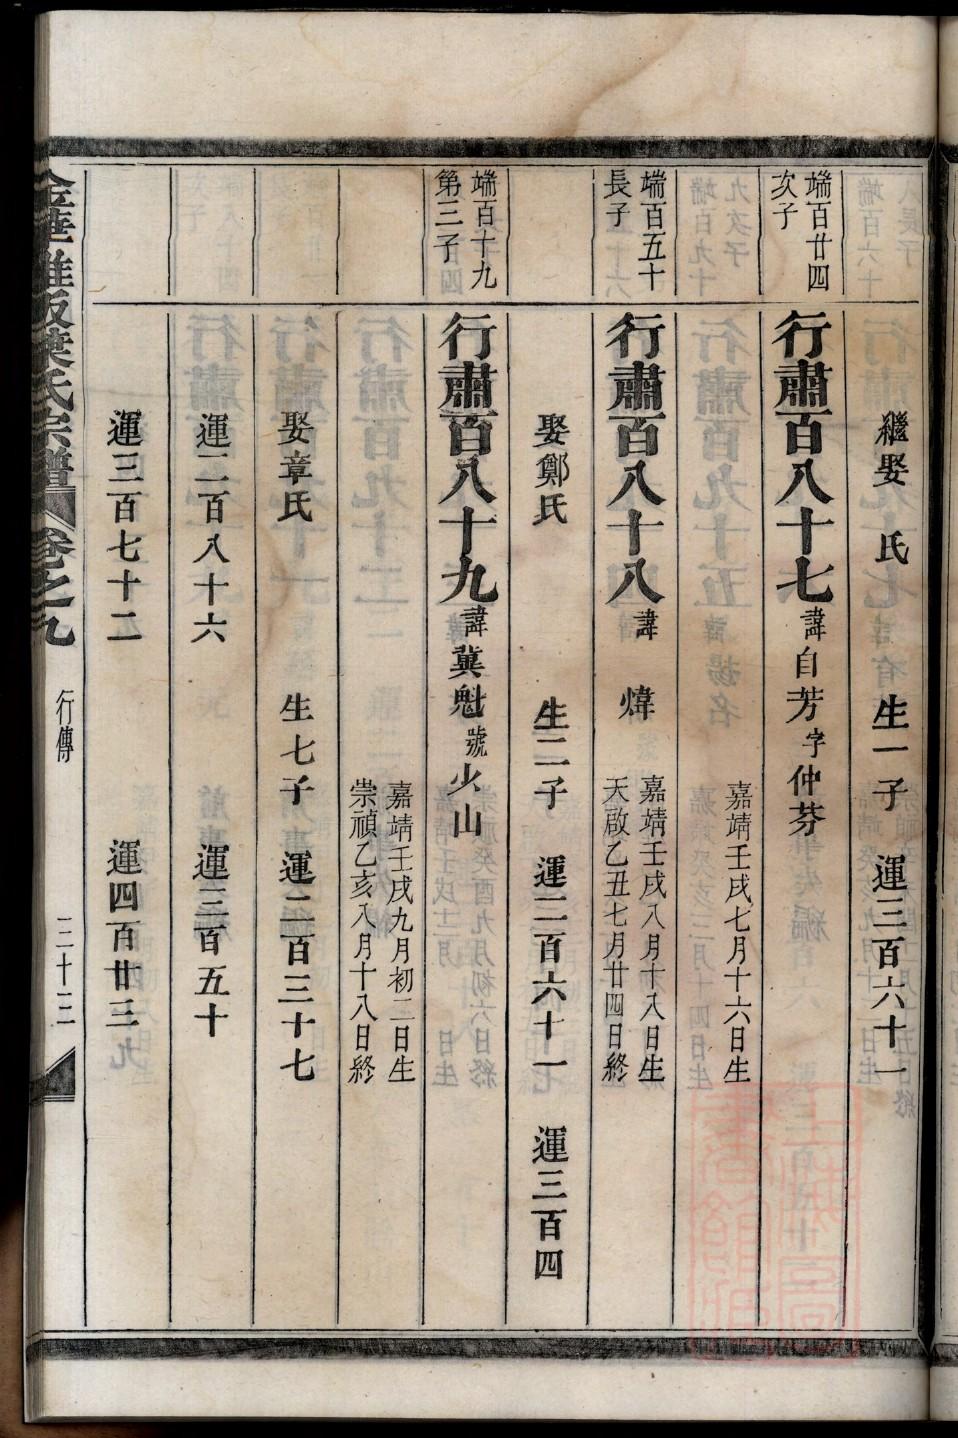 繼娶　氏　生一子　運三百六十一
端百廿四
次子
行肅百八十七　諱自芳　字仲芬
嘉靖壬戌七月十六日生
端百五十
長子
行肅百八十八　諱　煒
嘉靖壬戌八月十八日生
天啟乙丑七月廿四日終
娶鄭氏　生二子　運二百六十一　運三百四
端百十九
第三子
行肅百八十九　諱冀魁　號火山
嘉靖壬戌九月初二日生
崇禎乙亥八月十八日終
娶章氏　生七子　運二百三十七
運二百八十六　運三百五十
運三百七十二　運四百廿三
葉氏宗譜　卷之九　行傳　三十三